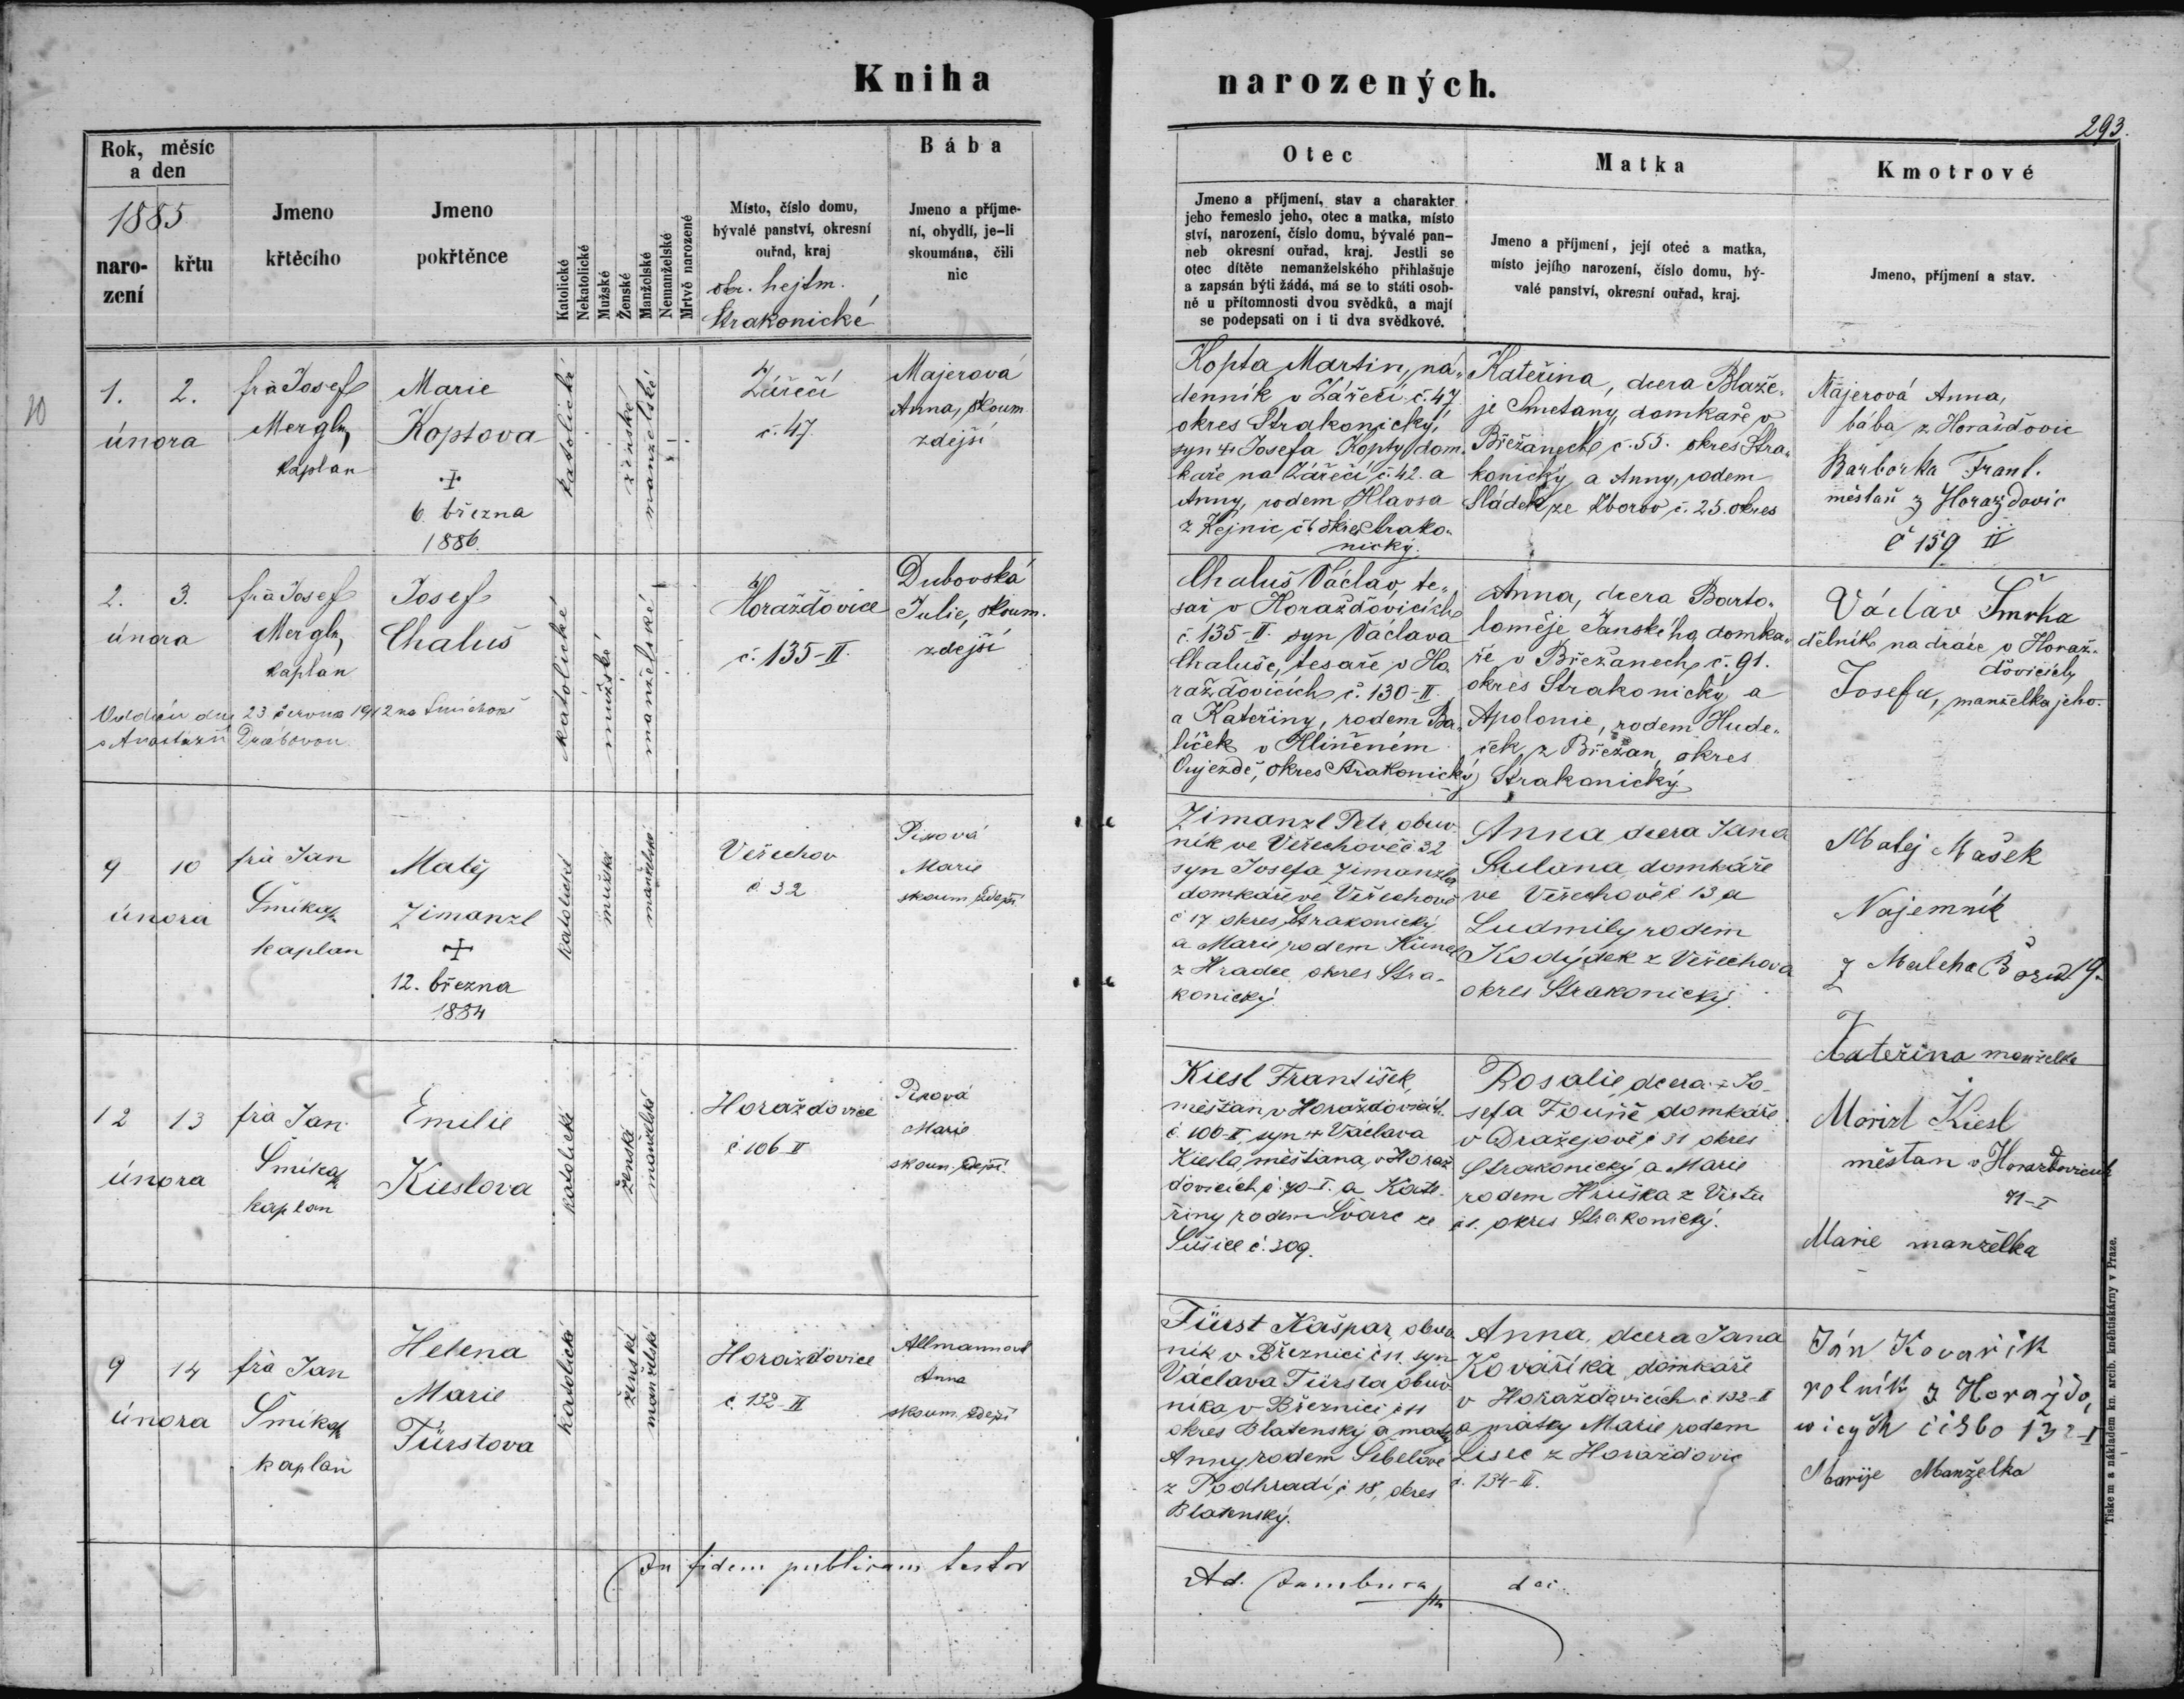 Kniha narozených.
293.
Rok, měsíc
a den
1885
naro-
zení
křtu
Jmeno
křtěcího
Jmeno
pokřtěnce
Katolické
Nekatolické
Mužské
Ženské
Manželské
Nemanželské
Mrtvě narozené
Místo, číslo domu,
bývalé panství, okresní
ouřad, kraj
okr. hejtm.
Strakonické
Bába
Jmeno a příjme-
ní, obydlí, je-li
skoumána, čili
nic
Otec
Jmeno a příjmení, stav a charakter
jeho řemeslo jeho, otec a matka, místo
ství, narození, číslo domu, bývalé pan-
neb okresní ouřad, kraj. Jestli se
otec dítěte nemanželského přihlašuje
a zapsán býti žádá, má se to státi osob-
ně u přítomnosti dvou svědků, a mají
se podepsati on i ti dva svědkové.
Matka
Jmeno a příjmení, její otec a matka,
místo jejího narození, číslo domu, bý-
valé panství, okresní ouřad, kraj.
Kmotrové
Jmeno, příjmení a stav.
10
1. 2.
února
frà Josef
Mergl,
kaplan
Marie
Koptova
✝
6. března
1886.
katolické
ženské
manželské
Zářečí
č. 47
Majerová
Anna, skoum.
zdejší
Kopta Martin, ná-
denník v Zářečí č. 47
okres Strakonický,
syn ✝ Josefa Kopty, dom-
kaře na Zářečí č. 42. a
Anny, rodem Hlavsa
z Kejnic č. 6 okres Strako-
nický.
Kateřina, dcera Blaže-
je Smetany, domkaře v
Břežanech č. 55. okres Stra-
konický a Anny, rodem
Sládek ze Zborov, č. 25. okres
Majerová Anna,
bába z Horažďovic
Barborka Frant.
měšťan z Horažďovic
č 159 II
2. 3.
února
frà Josef
Mergl,
kaplan
Josef
Chaluš
Oddán dne 23 června 1912 na Smíchově
s Anastázií Drábovou.
katolické
mužské
manželské
Horažďovice
č. 135-II.
Dubovská
Julie, skoum.
zdejší
Chaluš Václav, te-
sař v Horažďovicích
č. 135-II. syn Václava
Chaluše, tesaře v Ho-
ražďovicích č. 130-II.
a Kateřiny, rodem Ba-
líček v Hliněném
Oujezdě, okres Strakonický
Anna, dcera Barto-
loměje Janského, domka-
ře v Břežanech, č. 91.
okres Strakonický a
Apolonie, rodem Hude-
ček z Břežan, okres
Strakonický
Václav Smrha
dělník na dráze v Horaž-
ďovicích
Josefa, manželka jeho.
9 10
února
frà Jan
Šmíkal
kaplan
Matěj
Zimanzl
✝
12. března
1884
katolické
mužské
manželské
Veřechov
č 32
Pixová
Marie
skoum. zdejší
Zimanzl Petr, obuv-
ník ve Veřechově č 32
syn Josefa Zimanzla
domkáře ve Veřechově
č 17 okres Strakonický
a Marie rodem
z Hradce okres Stra-
konický.
Anna dcera Jana
Sulana domkáře
ve Veřechově č 13 a
Ludmily rodem
Kodýdek z Veřechova
okres Strakonický.
Matej Mašek
Najemník
z
Kateřina manželka
12 13
února
frà Jan
Šmíkal
kaplan
Emilie
Kieslova
katolické
ženské
manželské
Horažďovice
č 106 II
Pixová
Marie
skoum. zdejší
Kiesl František,
měšťan v Horažďovicích
č. 106-II, syn ✝ Václava
Kiesla, měštana v Horaž-
ďovicích č. 70-I. a Kate-
řiny rodem Švarc ze
Sušice č. 309.
Rosalie, dcera ✝ Jo-
sefa Touše domkáře
v Dražejově č 31 okres
Strakonický a Marie
rodem Hruška z Virtu
č 1. okres Strakonický.
Moritz Kiesl
měštan v Horažďovicích
71-I
Marie manželka
9 14
února
frà Jan
Šmíkal
kaplan
Helena
Marie
Fürstova
katolické
ženské
manželské
Horažďovice
č. 132-II
Allmannová
Anna
skoum. zdejší
Fürst Kašpar, obuv-
ník v Březnici č 11. syn
Václava Fürsta, obuv-
níka v Březnici č 11
okres Blatenský a matky
Anny rodem Sebelové
z Podhradí č 18, okres
Blatenský.
Anna, dcera Jana
Kováříka domkáře
v Horažďovicích č 132-II
a matky Marie rodem
Lisec z Horažďovic
č. 134-II.
Ján Kovařik
rolník z Horažďo-
wicych čislo 132-I
Marije Manželka
In fidem publicam testor
Ad. Jambura
Tiskem a nákladem kn. arcib. knihtiskárny v Praze.